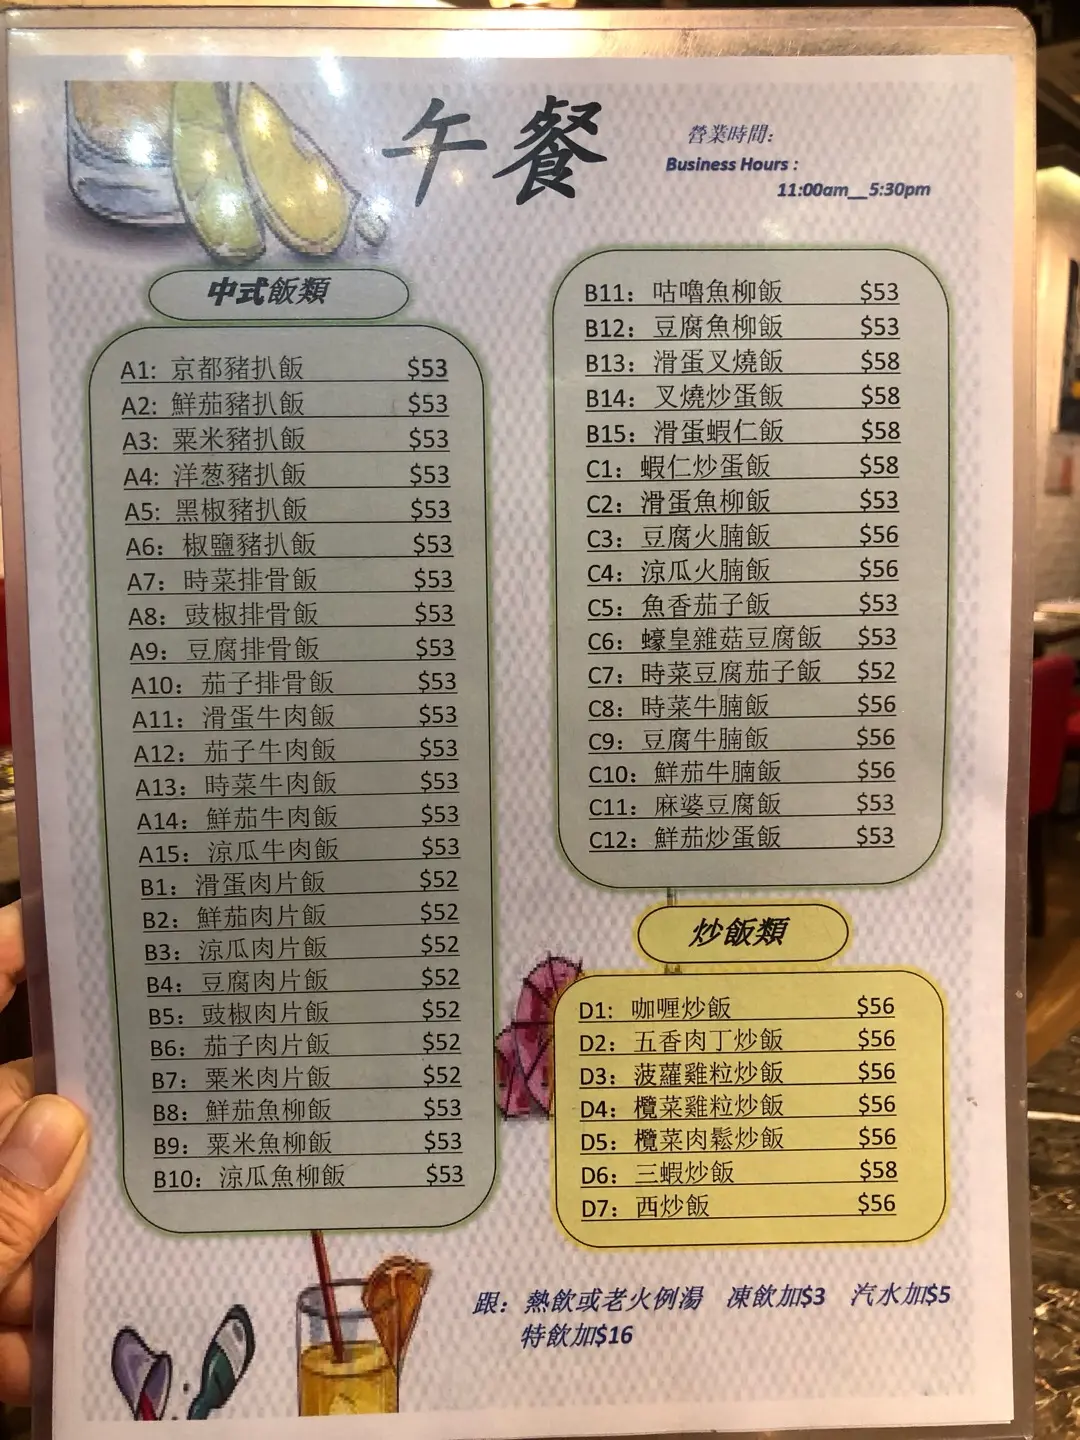 午餐
營業時間:
Business Hours :
11:00am__5:30pm
中式飯類
A1: 京都豬扒飯 $53
A2: 鮮茄豬扒飯 $53
A3: 粟米豬扒飯 $53
A4: 洋葱豬扒飯 $53
A5: 黑椒豬扒飯 $53
A6: 椒鹽豬扒飯 $53
A7: 時菜排骨飯 $53
A8: 豉椒排骨飯 $53
A9: 豆腐排骨飯 $53
A10: 茄子排骨飯 $53
A11: 滑蛋牛肉飯 $53
A12: 茄子牛肉飯 $53
A13: 時菜牛肉飯 $53
A14: 鮮茄牛肉飯 $53
A15: 涼瓜牛肉飯 $53
B1: 滑蛋肉片飯 $52
B2: 鮮茄肉片飯 $52
B3: 涼瓜肉片飯 $52
B4: 豆腐肉片飯 $52
B5: 豉椒肉片飯 $52
B6: 茄子肉片飯 $52
B7: 粟米肉片飯 $52
B8: 鮮茄魚柳飯 $53
B9: 粟米魚柳飯 $53
B10: 涼瓜魚柳飯 $53
B11: 咕嚕魚柳飯 $53
B12: 豆腐魚柳飯 $53
B13: 滑蛋叉燒飯 $58
B14: 叉燒炒蛋飯 $58
B15: 滑蛋蝦仁飯 $58
C1: 蝦仁炒蛋飯 $58
C2: 滑蛋魚柳飯 $53
C3: 豆腐火腩飯 $56
C4: 涼瓜火腩飯 $56
C5: 魚香茄子飯 $53
C6: 蠔皇雜菇豆腐飯 $53
C7: 時菜豆腐茄子飯 $52
C8: 時菜牛腩飯 $56
C9: 豆腐牛腩飯 $56
C10: 鮮茄牛腩飯 $56
C11: 麻婆豆腐飯 $53
C12: 鮮茄炒蛋飯 $53
炒飯類
D1: 咖喱炒飯 $56
D2: 五香肉丁炒飯 $56
D3: 菠蘿雞粒炒飯 $56
D4: 欖菜雞粒炒飯 $56
D5: 欖菜肉鬆炒飯 $56
D6: 三蝦炒飯 $58
D7: 西炒飯 $56
跟: 熱飲或老火例湯 凍飲加$3 汽水加$5
特飲加$16